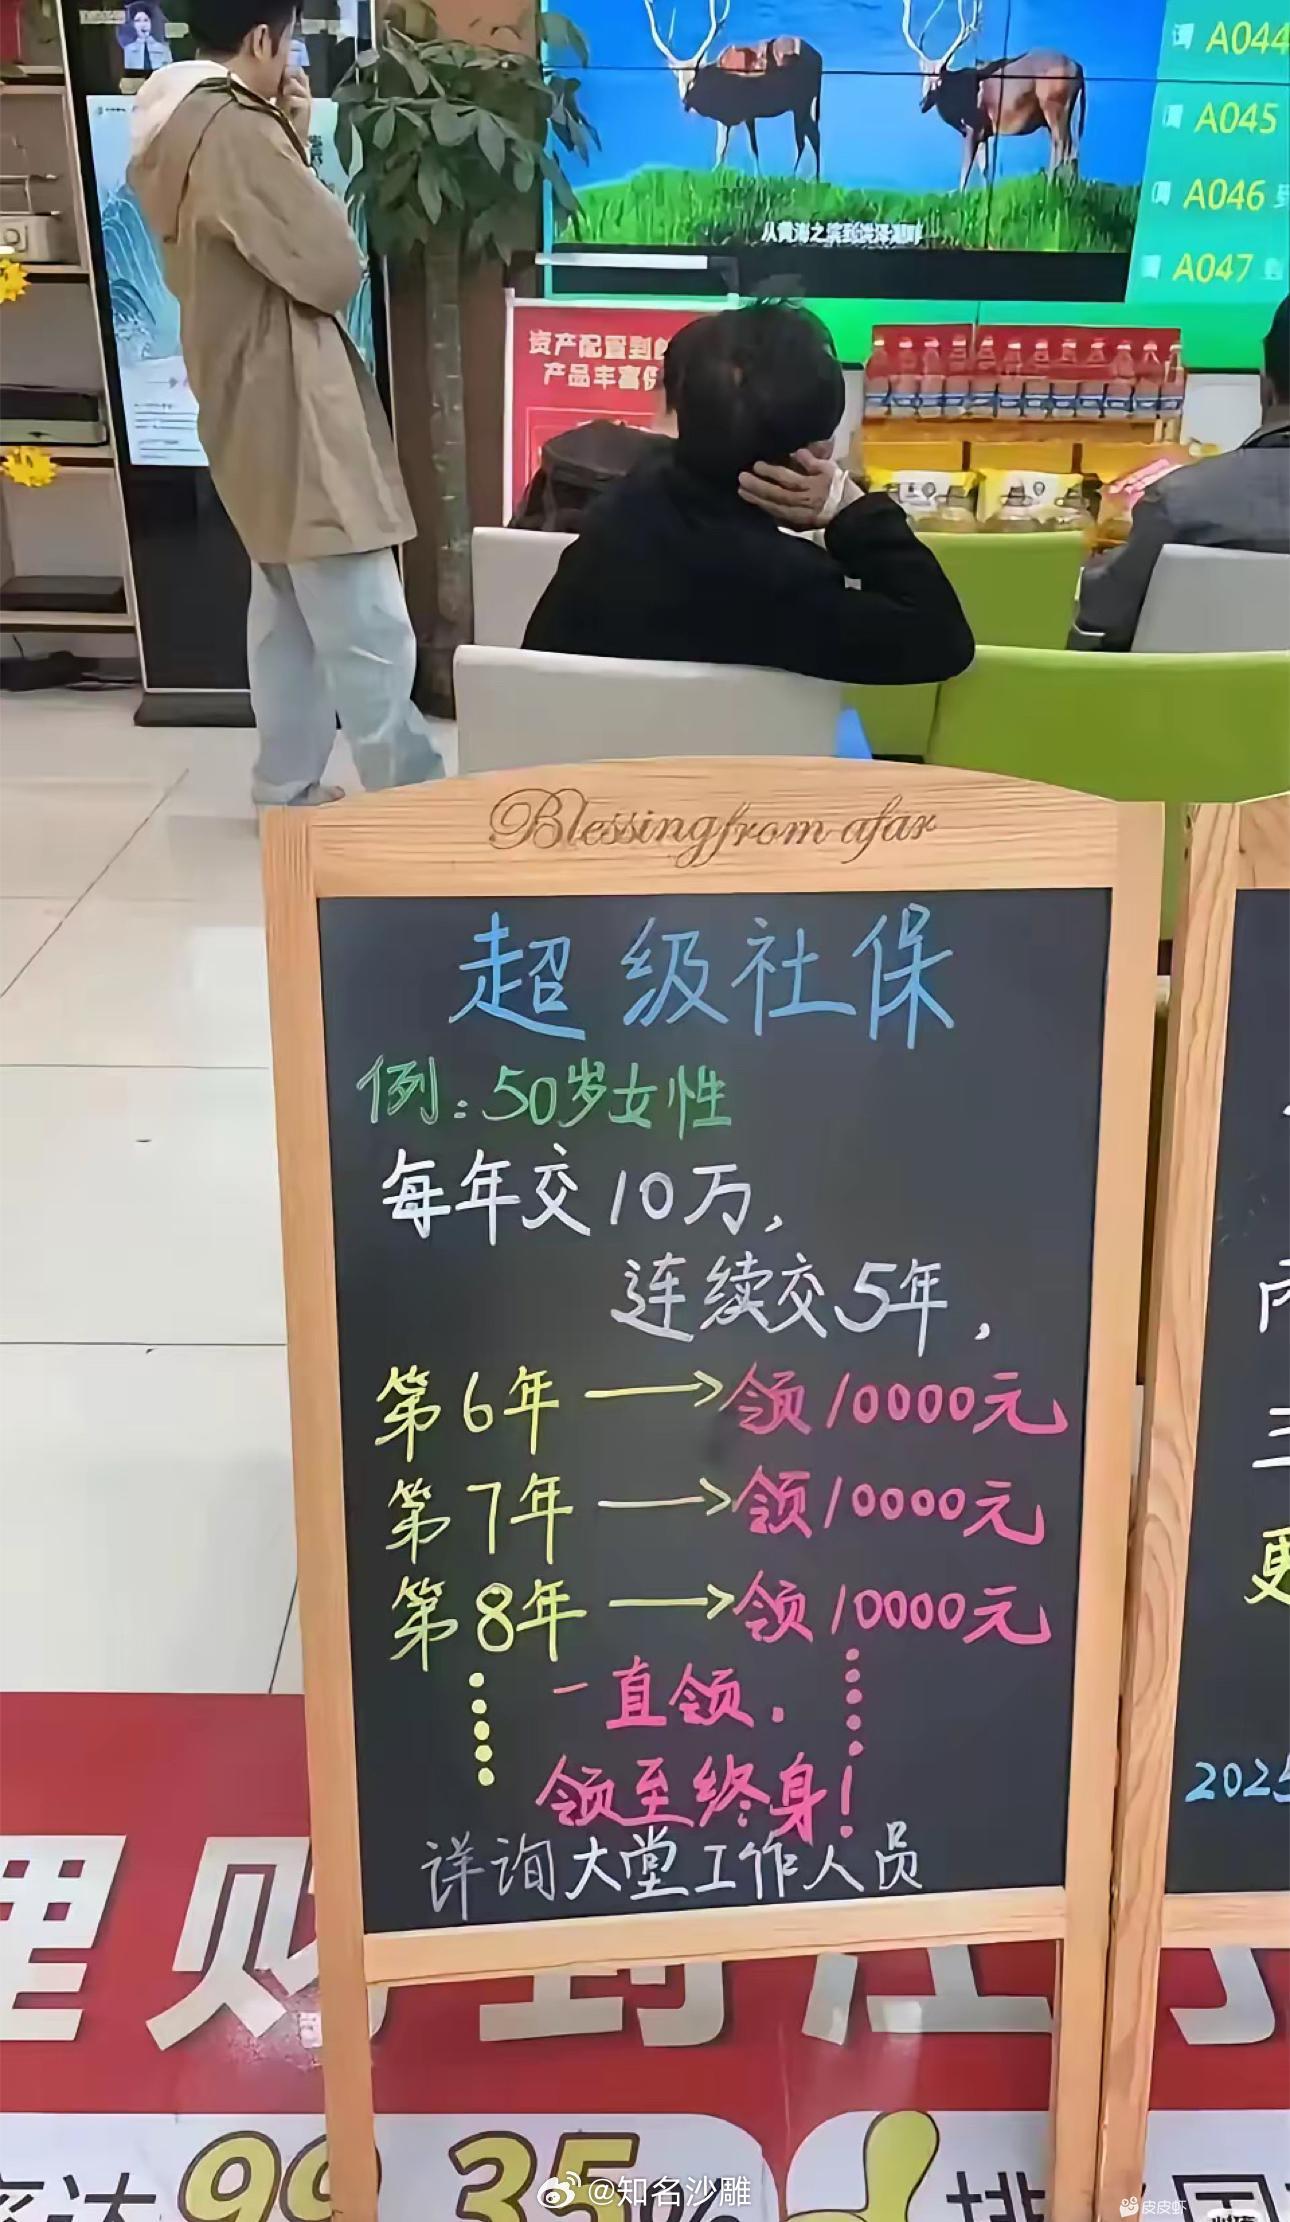 A044
A045
A046
A047
从黄海之滨到洪泽湖畔
资产配置到
产品丰富
Blessing from afar
超级社保
例:50岁女性
每年交10万,
连续交5年,
第6年→领10000元
第7年→领10000元
第8年→领10000元
一直领.
领至终身!
详询大堂工作人员
三
更
2025
理财到江
率达99.35%
排
@知名沙雕
皮皮虾